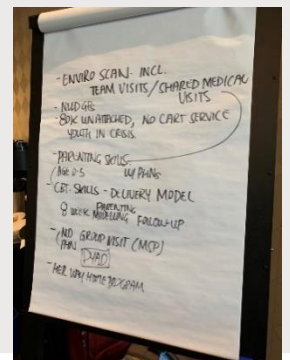 - ENVIRO SCAN. INCL.
TEAM VISITS/SHARED MEDICAL
VISITS
- NUDGES
- 80% UNATTACHED, NO CART SERVICE
YOUTH IN CRISIS.
- PARENTING SKILLS
AGE 0-5 W/ PHNs
- CBT SKILLS - DELIVERY MODEL
8 WEEK PARENTING MODELLING FOLLOW-UP
- MD GROUP VISIT (MSP)
PHN
DYAD
- HER WAY HOME PROGRAM